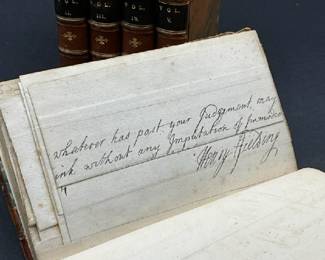 VOL.
VOL.
III.
VOL.
IV.
VOL.
V.
whatever has past your Judgement, may
ink without any Imputation of Immodes
Henry Fielding